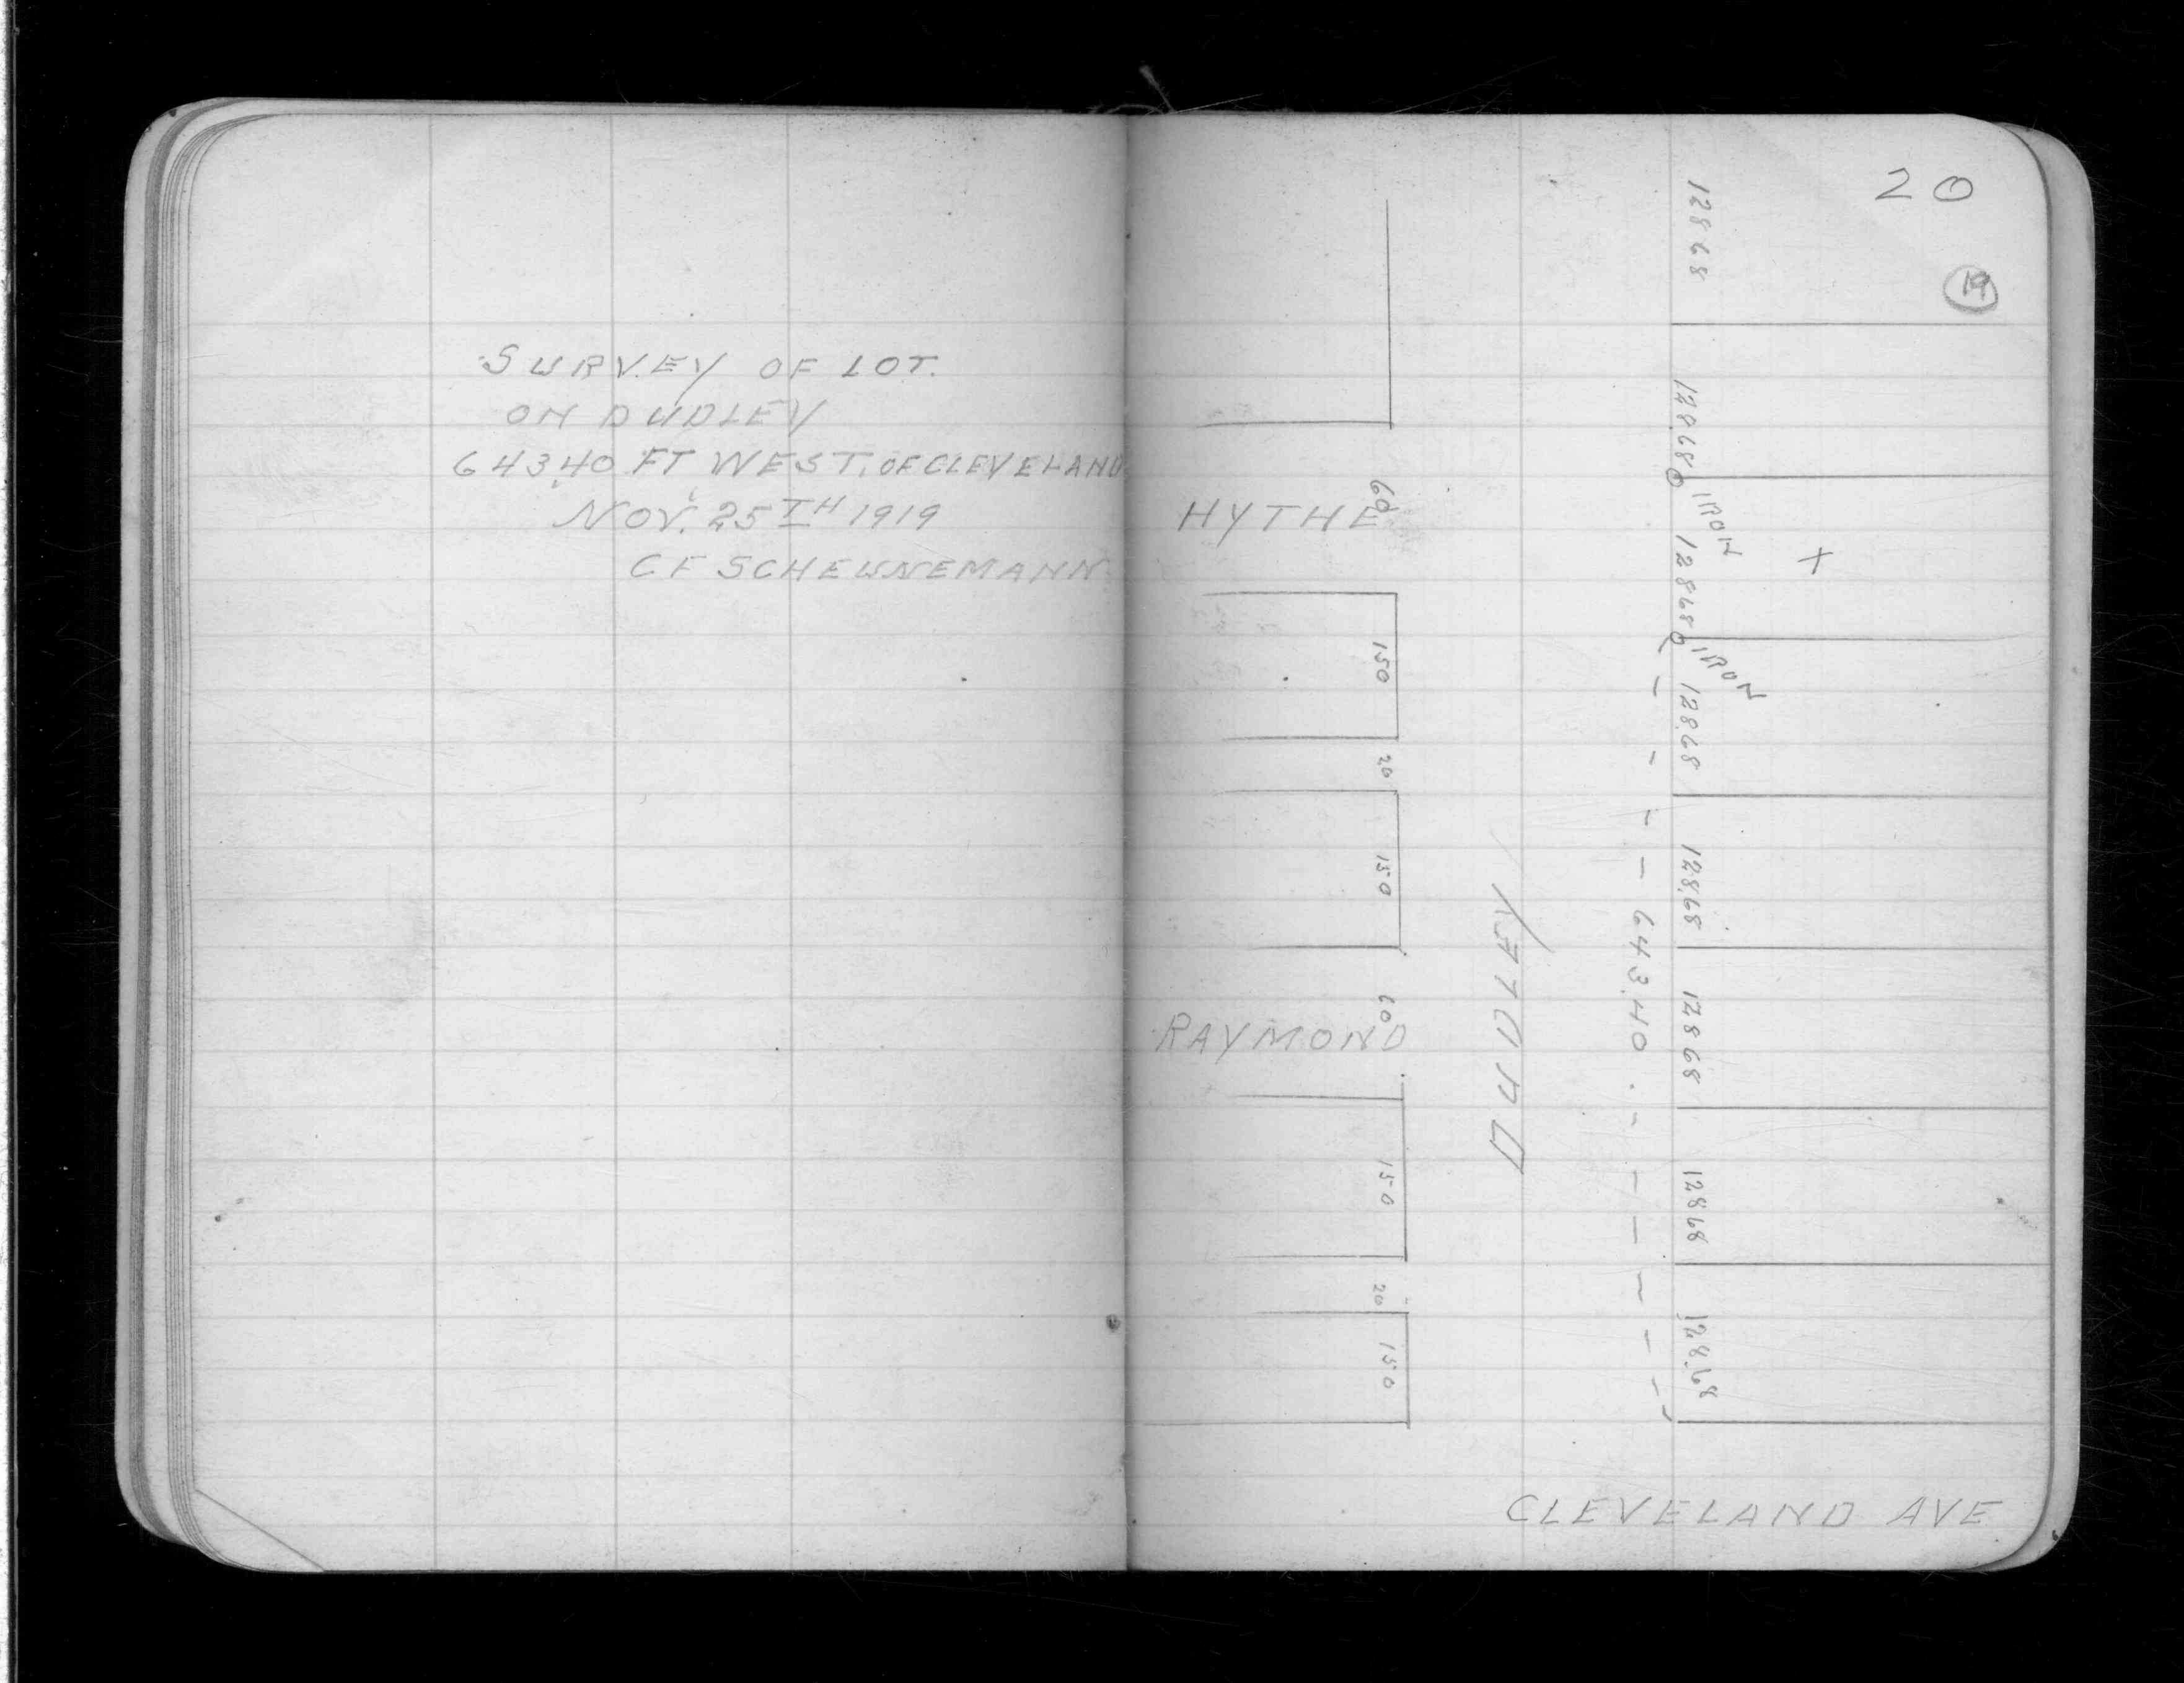 SURVEY OF LOT.
ON DUDLEY
643.40 FT WEST. OF CLEVELAND
NOV. 25TH 1919
C F SCHEUNEMANN
20
19
128 68
128.68
IRON
128 68
X
IRON
128.68
128.68
128 68
128 68
128.68
643.40
DUDLEY
60
HYTHE
150
20
150
60
RAYMOND
150
20
150
CLEVELAND AVE